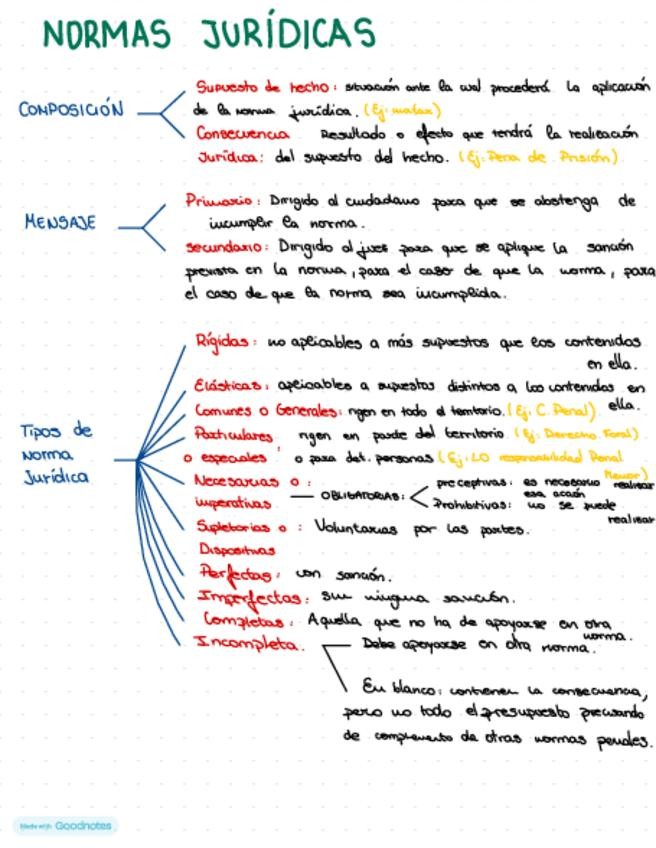 NORMAS JURÍDICAS
COMPOSICIÓN
Supuesto de hecho: situación ante la cual procederá la aplicación
de la norma jurídica. (Ej: matar)
Consecuencia Resultado o efecto que tendrá la realización
Jurídica: del supuesto del hecho. (Ej: Pena de Prisión)
MENSAJE
Primario: Dirigido al ciudadano para que se abstenga de
incumplir la norma.
secundario: Dirigido al juez para que se aplique la sanción
prevista en la norma, para el caso de que la norma, para
el caso de que la norma sea incumplida.
Tipos de
Norma
Jurídica
Rígidas: no aplicables a más supuestos que los contenidos
en ella.
Elásticas: aplicables a supuestos distintos a los contenidos en
ella.
Comunes o Generales: rigen en todo el territorio. (Ej: C. Penal)
Particulares rigen en parte del territorio (Ej: Derecho Foral)
o especiales : o para det. personas (Ej: LO responsabilidad Penal
Menor)
Necesarias o :
imperativas
OBLIGATORIAS:
preceptivas: es necesario realizar
esa acción
Prohibitivas: no se puede
realizar
Supletorias o : Voluntarias por las partes.
Dispositivas
Perfectas: con sanción.
Imperfectas: sin ninguna sanción.
Completas: Aquella que no ha de apoyarse en otra
norma.
Incompleta. Debe apoyarse en otra norma.
En blanco: contienen la consecuencia,
pero no todo el presupuesto precisando
de complemento de otras normas penales.
Made with Goodnotes